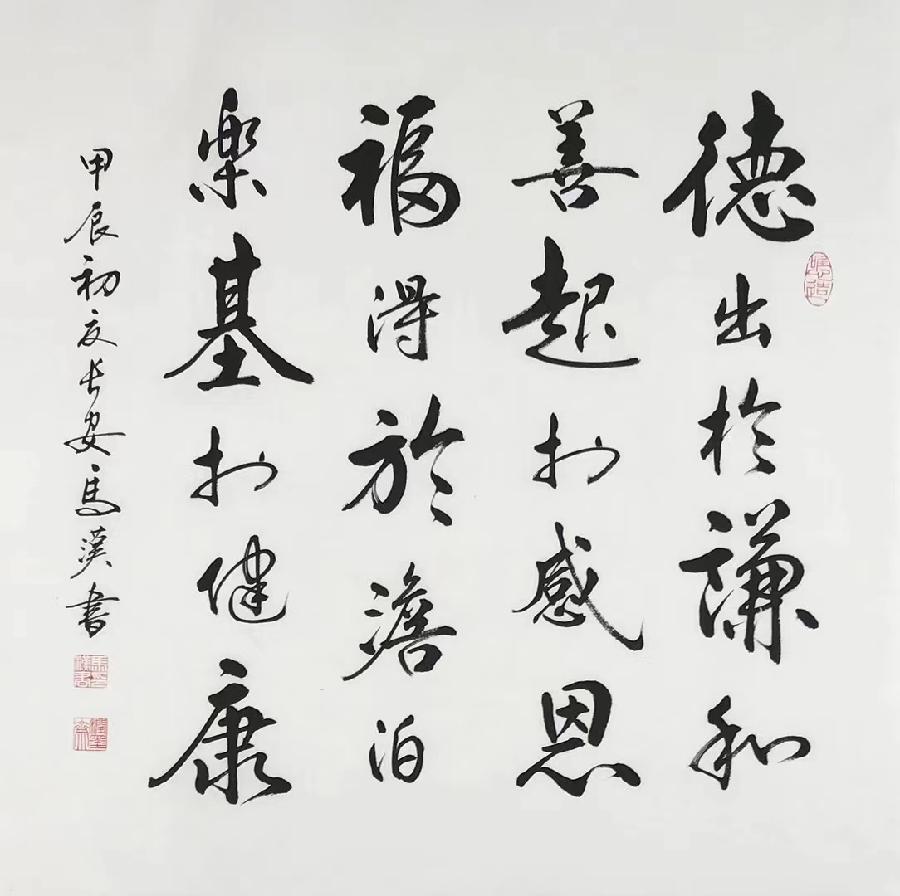 德出於謙和
善起於感恩
福得於澹泊
樂基於健康
甲辰初夏長安馬漢書